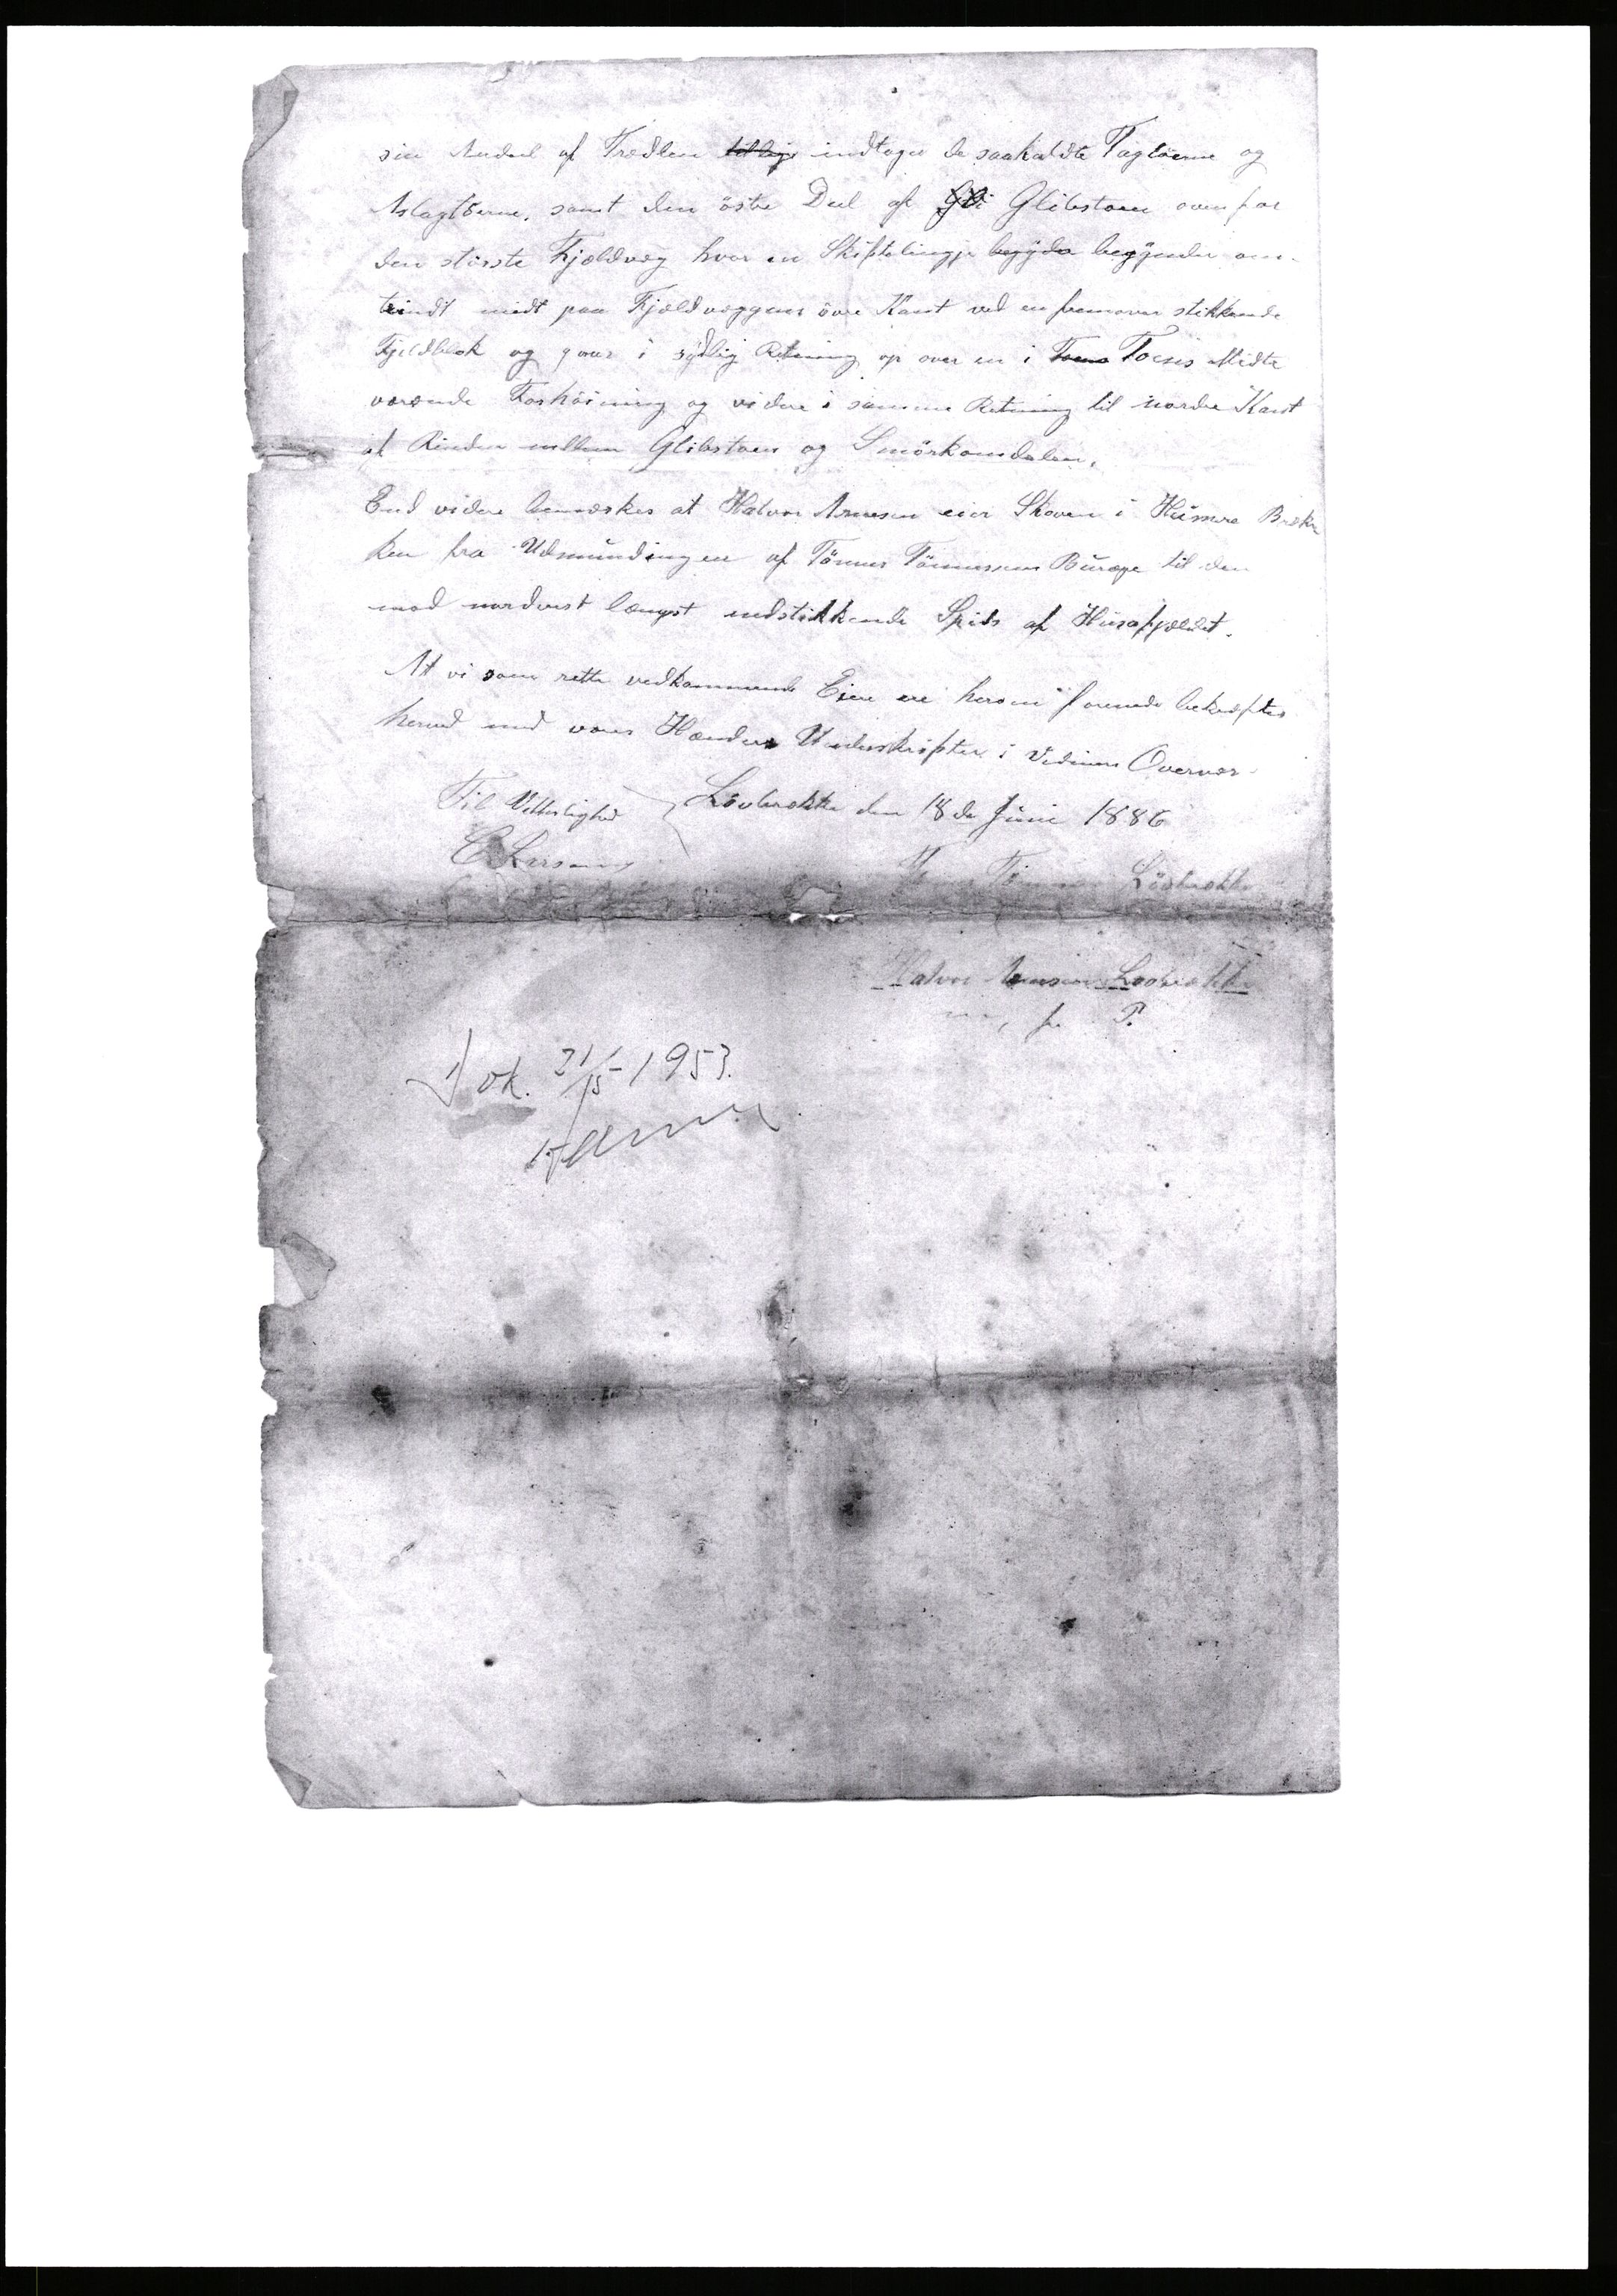 sin Andeel af Trædlen tillige indtager de saakaldte Tagtöerne og
Aslagtöerne, samt den östre Deel af Gli Glibstoen ovenfor
den störste Fjeldvæg hvor en Skiftelingje begyde begynder om-
trindt midt paa Fjeldvæggens övre Kant ved en fremover stikkende
Fjeldblok og gaar i sydlig Retning op over en i Toens Toens Midte
værende Forhöining og videre i samme Retning til nordre Kant
af Rinden mellem Glibstoen og Smörkomdalen.
End videre bemærkes at Halvor Arnesen eier Skoven i Hüsmre Bræk
ken fra Udmündingen af Tönnes Tönnessens Büræge til den
mod nordvest længst nedstikkende Spids af Hüsafjeldet.
At vi som rette vedkommende Eiere ere herom forenede bekræftes
herved med vores Hænders Underskrifter i Vidners Overvær
Til Vitterlighed Lövbrække den 18de Juni 1886
C. Larsen Lövbrække
Halvor Arnesen Lovbrække
m, p. P.
ok. 21/5 1953.